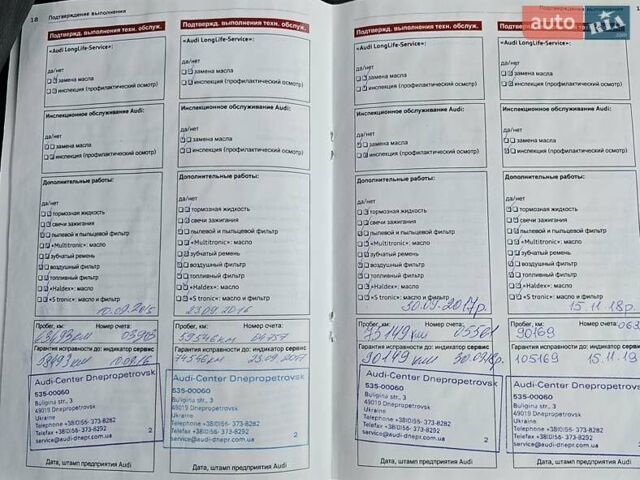 18 Подтверждение выполнения
Подтвержд. выполнения техн. обслуж.
«Audi LongLife-Service»:
да/нет
замена масла
инспекция (профилактический осмотр)
Инспекционное обслуживание Audi:
да/нет
замена масла
инспекция (профилактический осмотр)
Дополнительные работы:
да/нет
тормозная жидкость
свечи зажигания
пылевой и пыльцевой фильтр
«Multitronic»: масло
зубчатый ремень
воздушный фильтр
топливный фильтр
«Haldex»: масло
«S tronic»: масло и фильтр
10.09.2015
Пробег, км: Номер счета:
Гарантия исправности до: индикатор сервис
10.09.16
Audi-Center Dnepropetrovsk
535-00060
Buligina str., 3
49019 Dnepropetrovsk
Ukraine
Telephone +38(0)56- 373-8282
Telefax +38(0)56- 373-8292
service@audi-dnepr.com.ua
2
Дата, штамп предприятия Audi
Подтвержд. выполнения техн. обслуж.
«Audi LongLife-Service»:
да/нет
замена масла
инспекция (профилактический осмотр)
Инспекционное обслуживание Audi:
да/нет
замена масла
инспекция (профилактический осмотр)
Дополнительные работы:
да/нет
тормозная жидкость
свечи зажигания
пылевой и пыльцевой фильтр
«Multitronic»: масло
зубчатый ремень
воздушный фильтр
топливный фильтр
«Haldex»: масло
«S tronic»: масло и фильтр
23.09.2016
Пробег, км: Номер счета:
59546км 04757
Гарантия исправности до: индикатор сервис
74546км 23.09.2017
Audi-Center Dnepropetrovsk
535-00060
Buligina str., 3
49019 Dnepropetrovsk
Ukraine
Telephone +38(0)56- 373-8282
Telefax +38(0)56- 373-8292
service@audi-dnepr.com.ua
2
Дата, штамп предприятия Audi
Подтверждение выполнения
Подтвержд. выполнения техн. обслуж.
«Audi LongLife-Service»:
да/нет
замена масла
инспекция (профилактический осмотр)
Инспекционное обслуживание Audi:
да/нет
замена масла
инспекция (профилактический осмотр)
Дополнительные работы:
да/нет
тормозная жидкость
свечи зажигания
пылевой и пыльцевой фильтр
«Multitronic»: масло
зубчатый ремень
воздушный фильтр
топливный фильтр
«Haldex»: масло
«S tronic»: масло и фильтр
30.09.2017р.
Пробег, км: Номер счета:
75149км 05501
Гарантия исправности до: индикатор сервис
90149км 30.09.18р.
Audi-Center Dnepropetrovsk
535-00060
Buligina str., 3
49019 Dnepropetrovsk
Ukraine
Telephone +38(0)56- 373-8282
Telefax +38(0)56- 373-8292
service@audi-dnepr.com.ua
2
Дата, штамп предприятия Audi
auto RIA
.com
«Audi LongLife-Service»:
да/нет
замена масла
инспекция (профилактический осмотр)
Инспекционное обслуживание Audi:
да/нет
замена масла
инспекция (профилактический осмотр)
Дополнительные работы:
да/нет
тормозная жидкость
свечи зажигания
пылевой и пыльцевой фильтр
«Multitronic»: масло
зубчатый ремень
воздушный фильтр
топливный фильтр
«Haldex»: масло
«S tronic»: масло и фильтр
15.11.18р.
Пробег, км: Номер счета:
90169
Гарантия исправности до: индикатор сервис
105169 15.11.19
Audi-Center Dnepropetrovsk
535-00060
Buligina str., 3
49019 Dnepropetrovsk
Ukraine
Telephone +38(0)56- 373-8282
Telefax +38(0)56- 373-8292
service@audi-dnepr.com.ua
Дата, штамп предприятия Audi